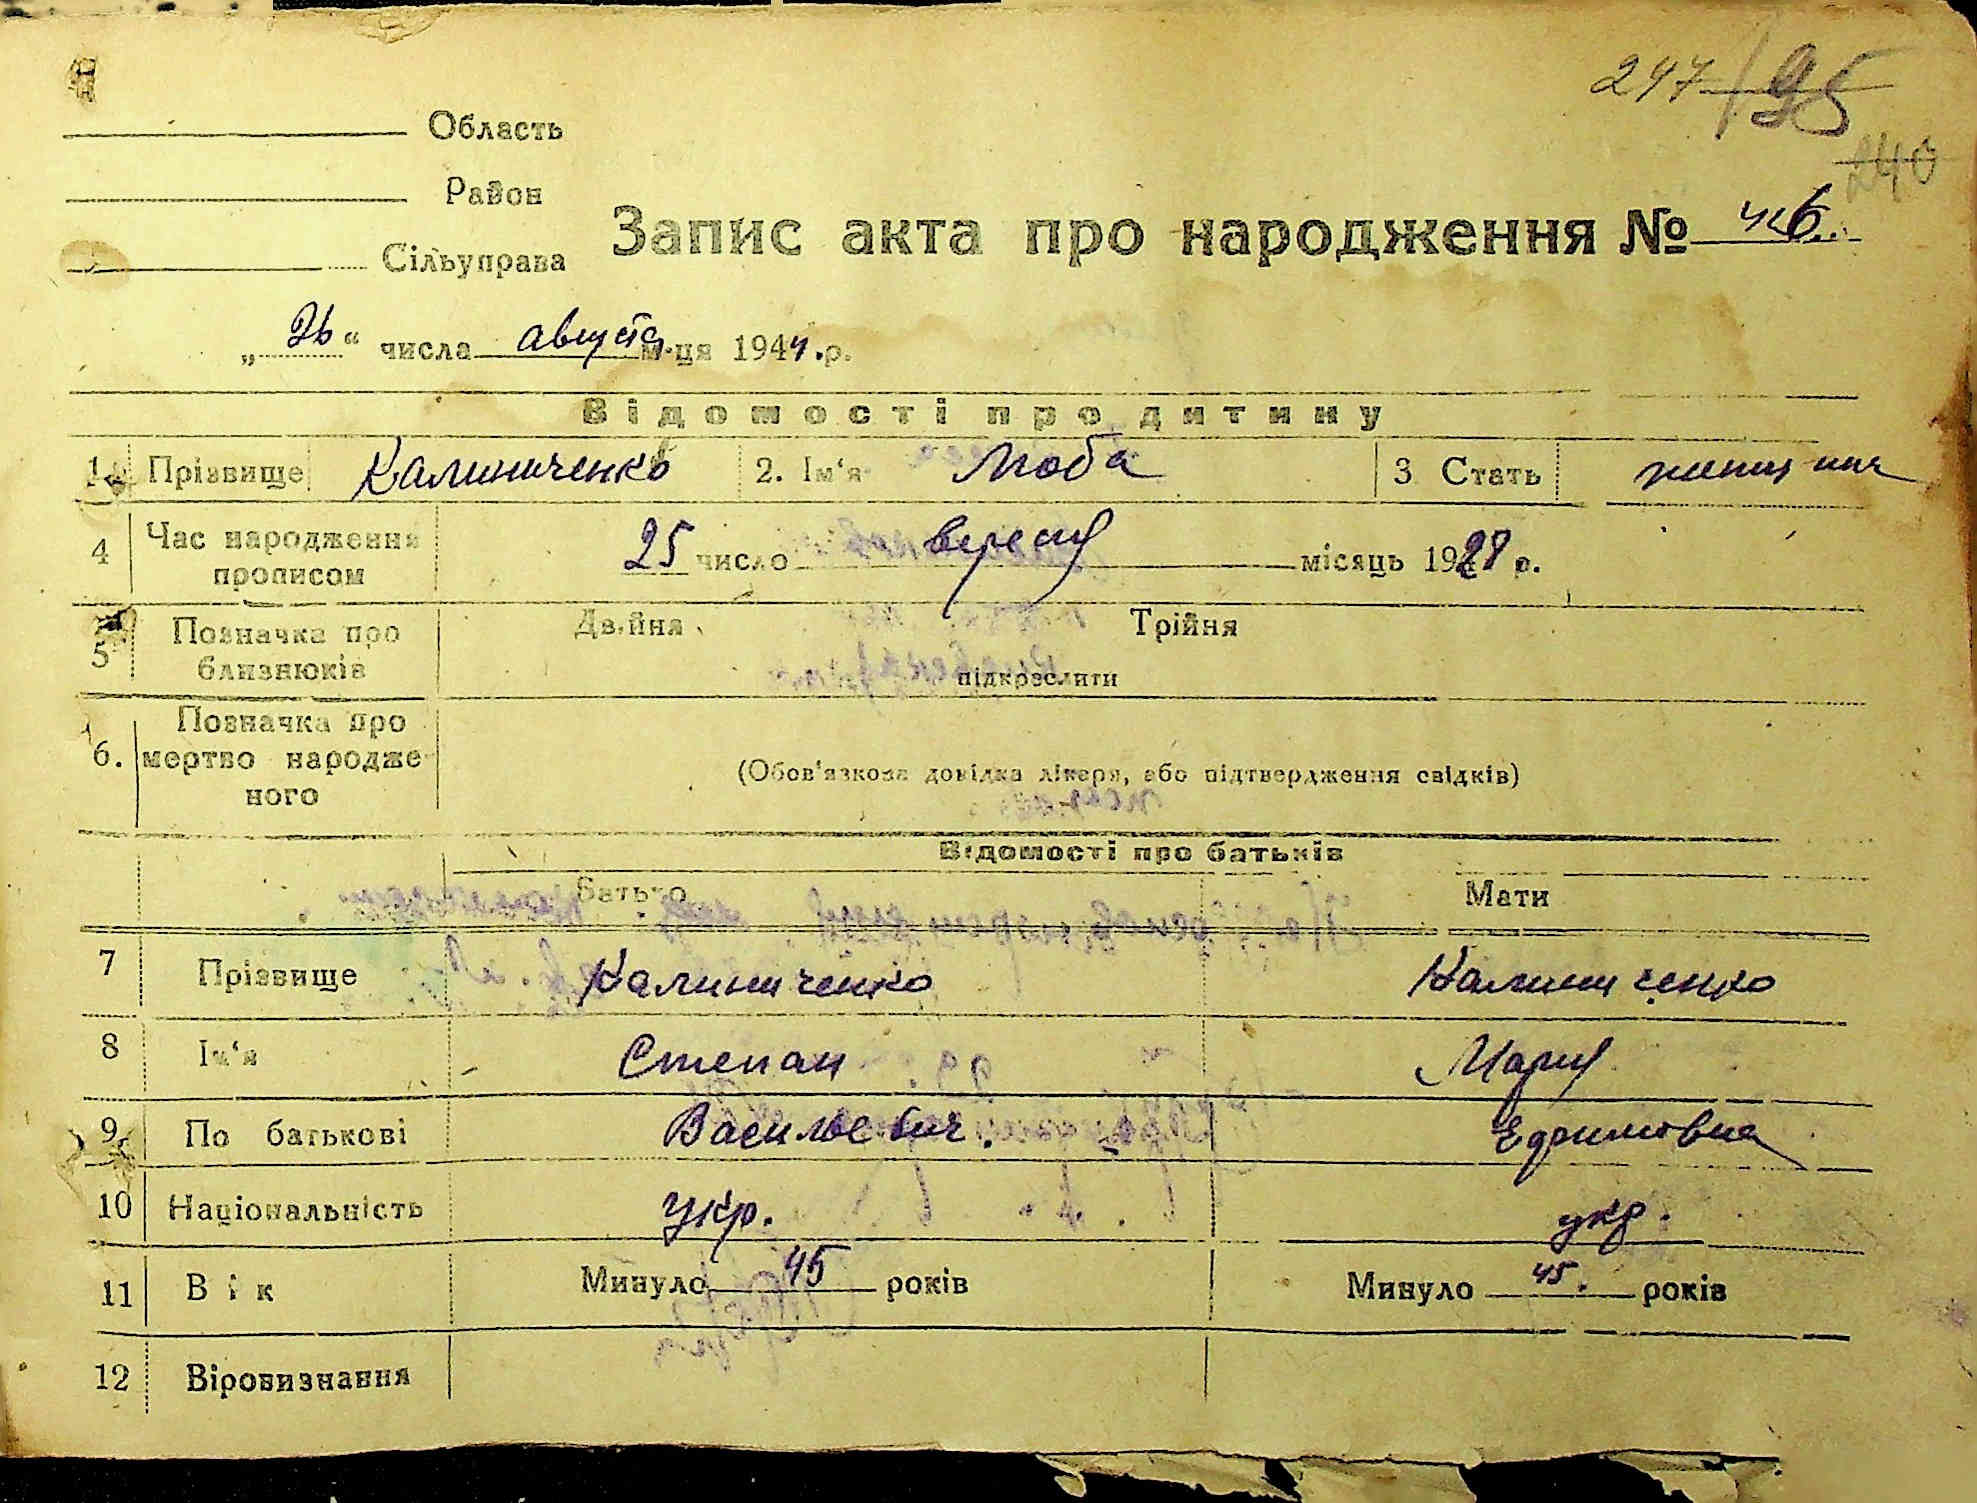 247 / 95
240
Область
Район
Сільуправа
Запис акта про народження №
„26“ числа августа м-ця 1944.р.
Відомості про дитину
1. Прізвище Калиниченко 2. Ім‘я Люба 3 Стать
4 Час народження прописом 25 число місяць 1928 р.
5 Позначка про близнюків Двійня Трійня
підкреслити
6. Позначка про мертво народженого
(Обов'язкова довідка лікаря, або підтвердження свідків)
Відомості про батьків
Батько Мати
7 Прізвище Калиниченко Калиниченко
8 Ім‘я Степан Мария
9 По батькові Васильевич. Ефимовна
10 Національність Укр. укр.
11 Вік Минуло 45 років Минуло 45. років
12 Віровизнання